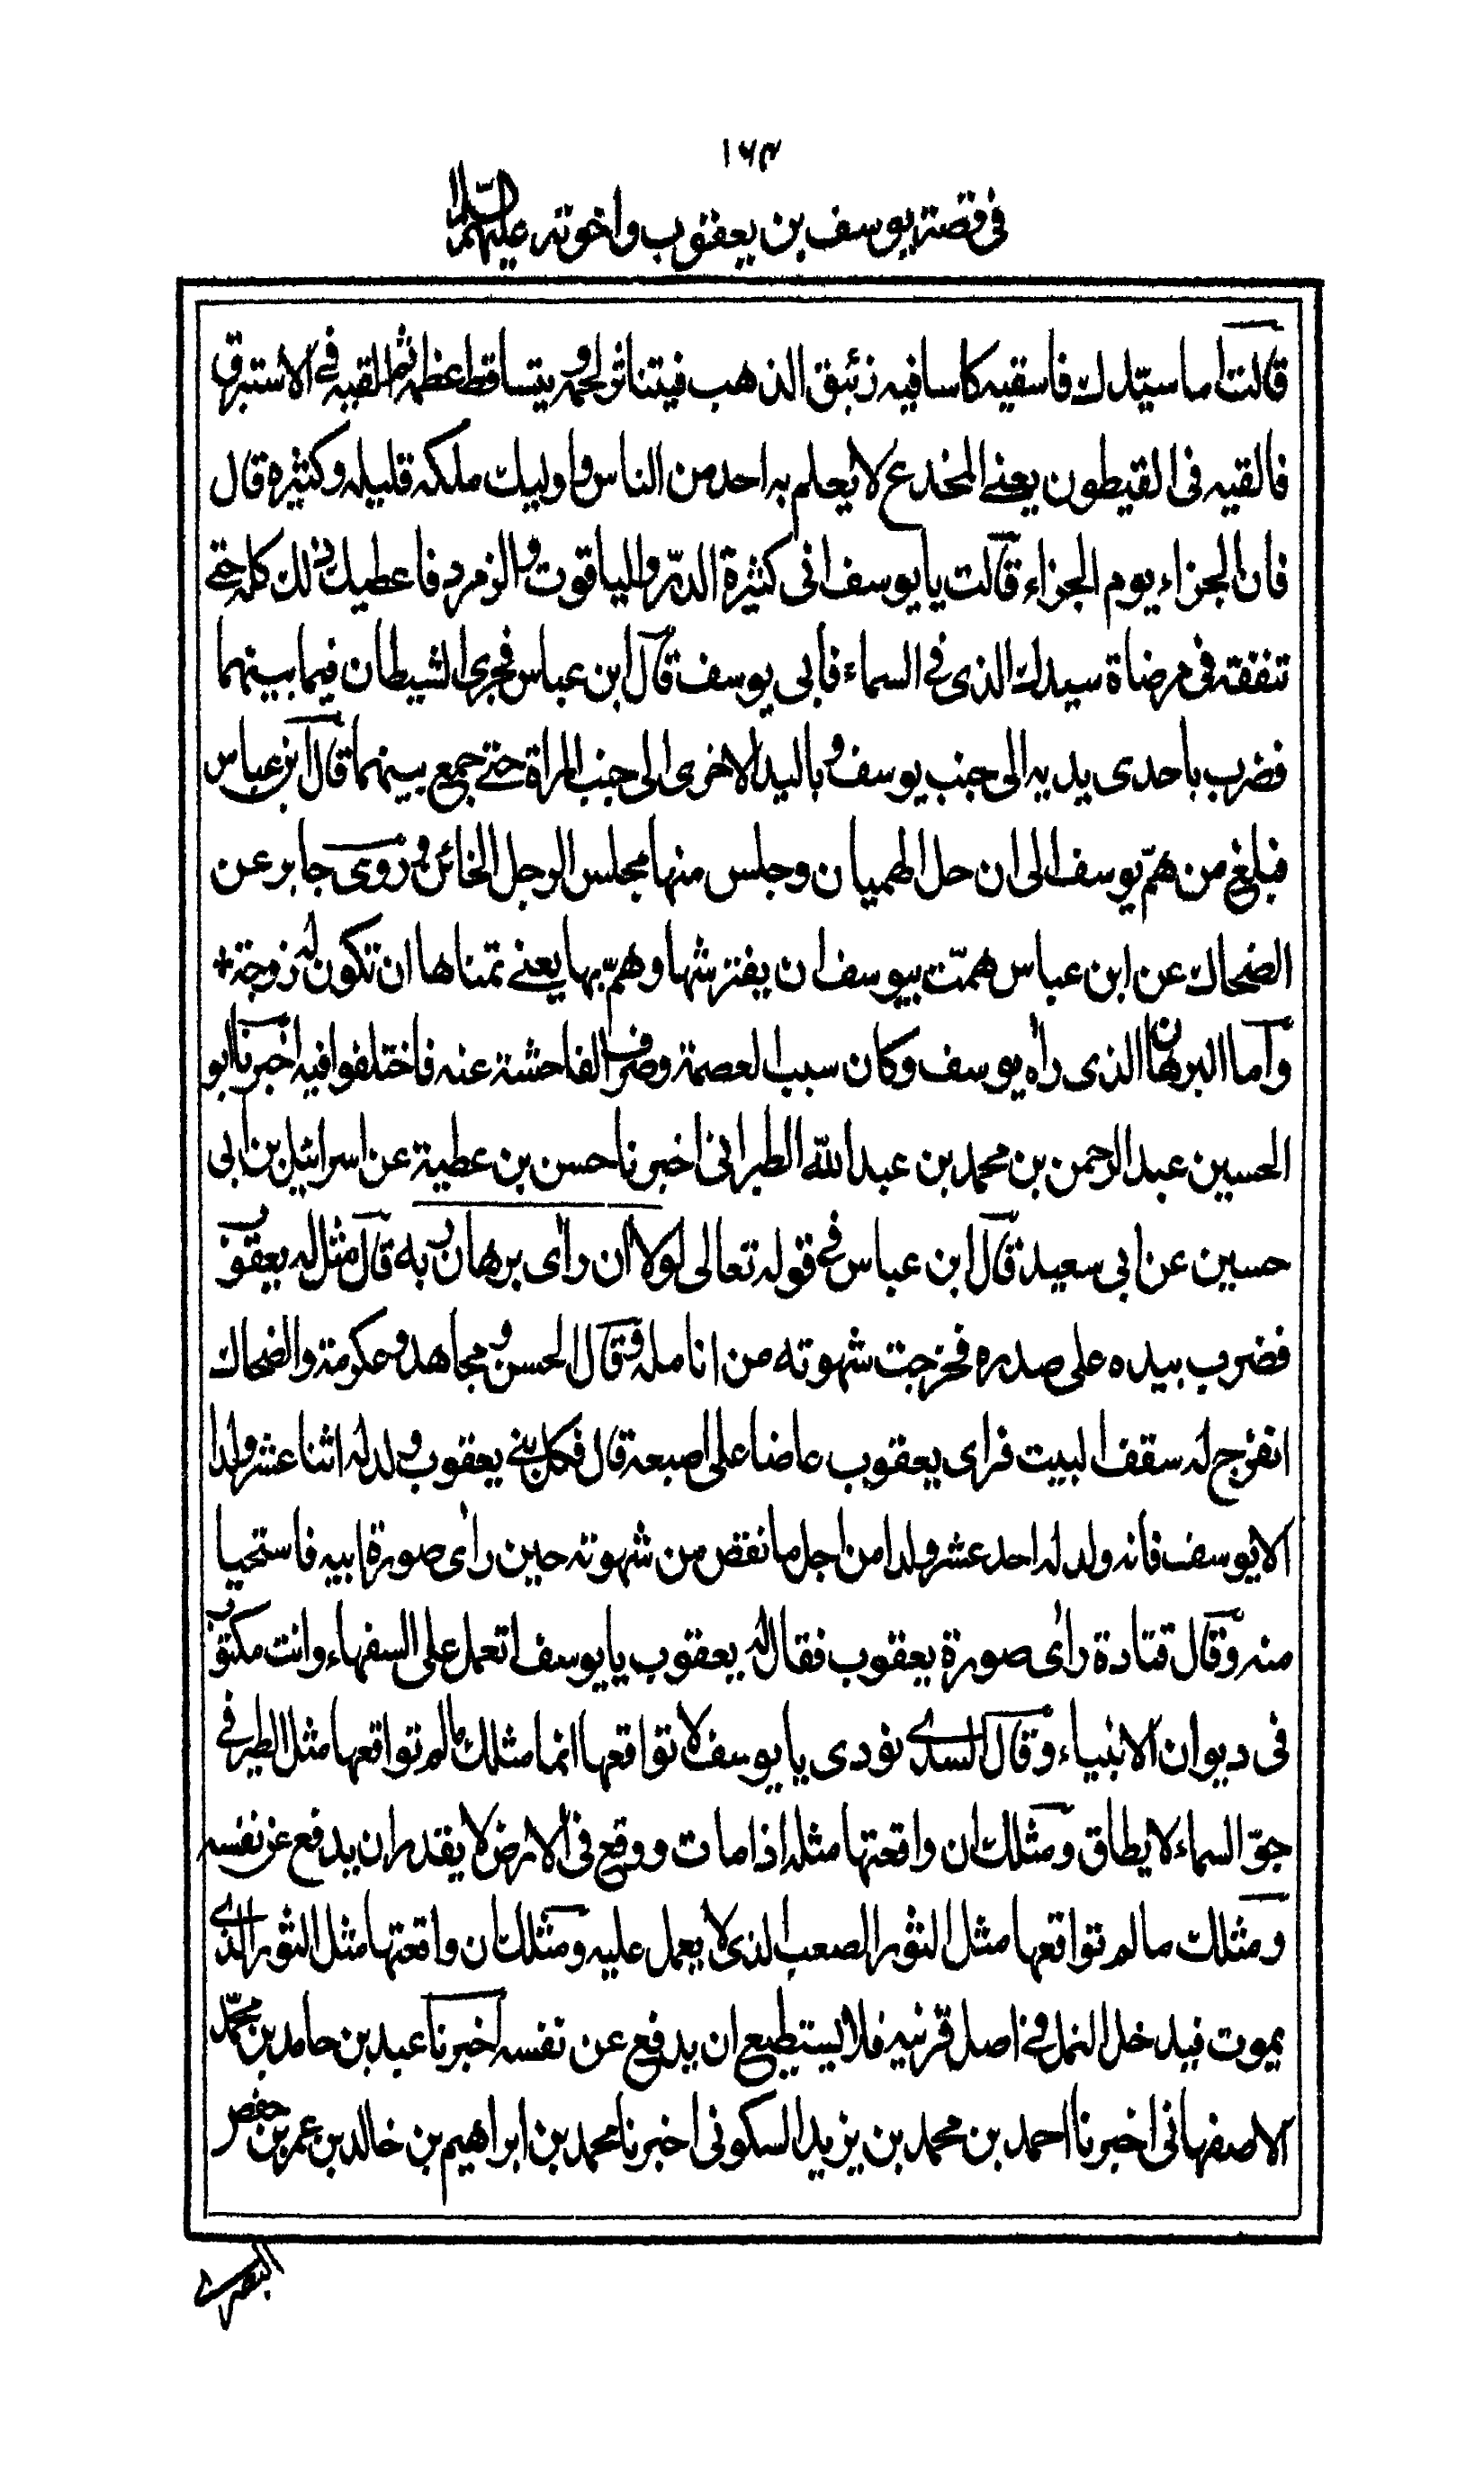 ١٦٣
في قصة يوسف بن يعقوب واخوته عليهم السلام
قالت اما سيّدك فاسقيه كاسا فيه زئبق الذهب فيتناثر لحمه ويتساقط عظمه ثم القيه في الاستبرق
فالقيه في القيطون يعني المخدع لا يعلم به احد من الناس واوليك ملكه قليله وكثيره قال
فان الجزاء يوم الجزاء قالت يا يوسف اني كثيرة الدرّ والياقوت والزمرد فاعطيك ذلك كله حتى
تنفقه في مرضاة سيدك الذي في السماء فابى يوسف قال ابن عباس فجرى الشيطان فيما بينهما
فضرب باحدى يديه الى جنب يوسف وباليد الاخرى الى جنب المراة حتى جمع بينهما قال ابن عباس
فبلغ من همّ يوسف الى ان حل الهميان وجلس منها مجلس الرجل الخائن وروى جابر عن
الضحاك عن ابن عباس همّت بيوسف ان يفترشها وهمّ بها يعني تمناها ان تكون له زوجة +
واما البرهان الذي راٰه يوسف وكان سبب العصمة وصرف الفاحشة عنه فاختلفوا فيه اخبرنا ابو
الحسين عبد الرحمن بن محمد بن عبد الله الطبراني اخبرنا حسن بن عطية عن اسرائيل بن ابي
حسين عن ابي سعيد قال ابن عباس في قوله تعالى لولا ان راٰى برهان ربه قال مثل له يعقوب
فضرب بيده على صدره فخرجت شهوته من انامله وقال الحسن ومجاهد وعكرمة والضحاك
انفرج له سقف البيت فراى يعقوب عاضا على اصبعه قال فكل بني يعقوب ولد له اثنا عشر ولدا
الا يوسف فانه ولد له احد عشر ولدا من اجل ما نقص من شهوته حين راٰى صورة ابيه فاستحيا
منه وقال قتادة راٰى صورة يعقوب فقال له يعقوب يا يوسف اتعمل على السفهاء وانت مكتوب
في ديوان الانبياء وقال السدي نودي يا يوسف لا تواقعها انما مثلك ما لم تواقعها مثل الطير في
جوّ السماء لا يطاق ومثلك ان واقعتها مثله اذا مات ووقع في الارض لا يقدر ان يدفع عن نفسه
ومثلك ما لم تواقعها مثل الثور الصعب الذي لا يعمل عليه ومثلك ان واقعتها مثل الثور الذي
يموت فيدخل النمل في اصل قرنيه فلا يستطيع ان يدفع عن نفسه اخبرنا عبد بن حامد بن محمّد
الاصفهاني اخبرنا احمد بن محمد بن يزيد السكوني اخبرنا محمد بن ابراهيم بن خالد بن عمر بن حفص
البصري